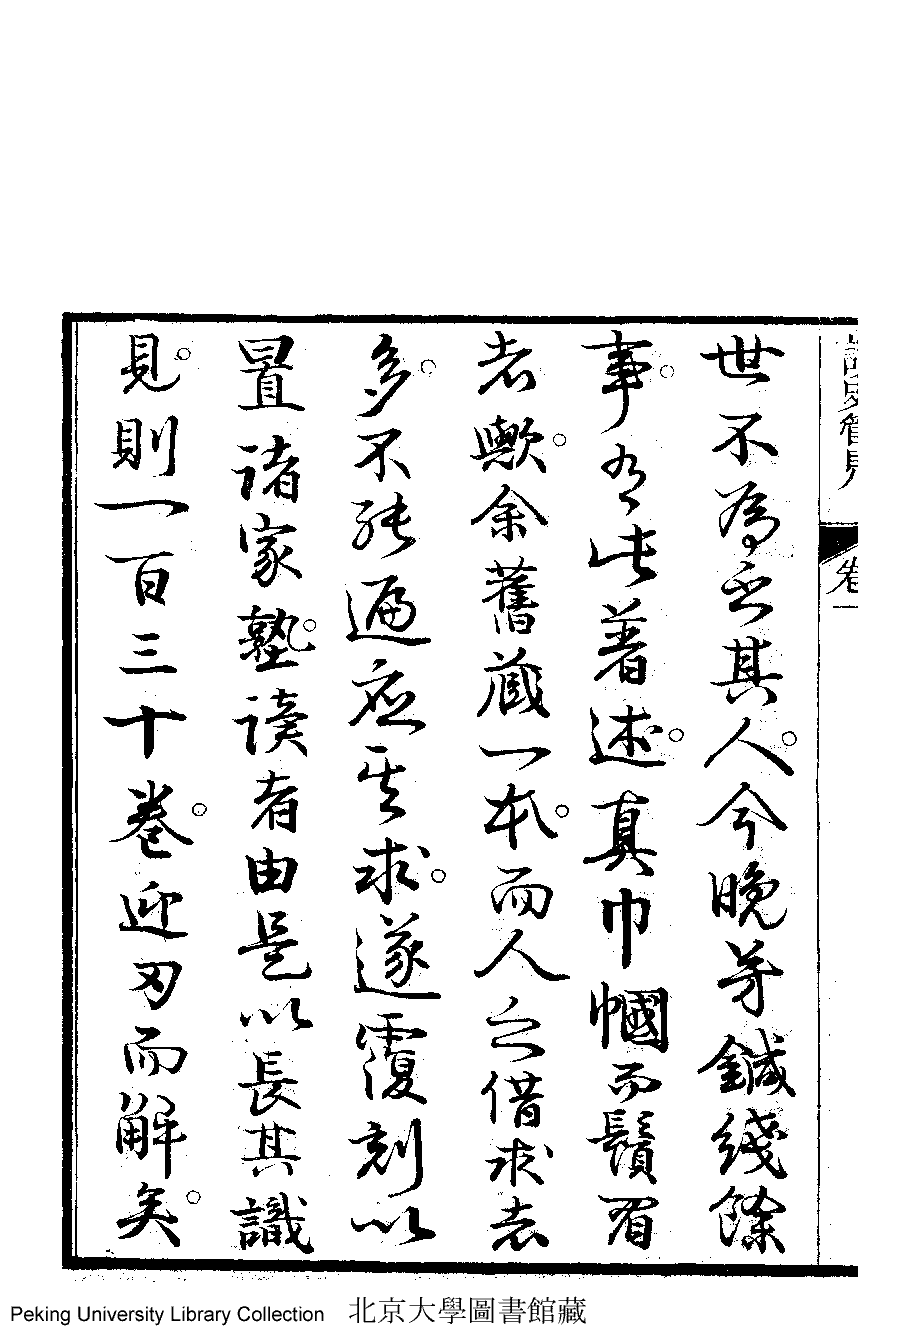 讀史管見 卷一
世不為乏其人。今晚芳鍼綫餘
事。有此著述。真巾幗而鬚眉
者歟。余舊藏一本。而人之借求者
多。不能遍應其求。遂覆刻以
置諸家塾。讀者由是以長其識
見。則一百三十卷。迎刃而解矣。
Peking University Library Collection 北京大學圖書館藏